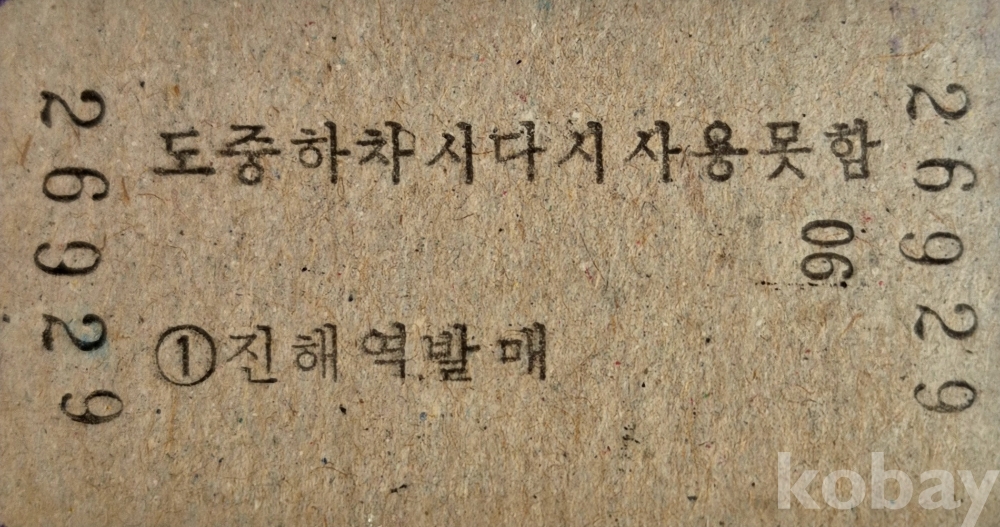 26929
도중하차시다시사용못함
06
①진해역발매
26929
kobay